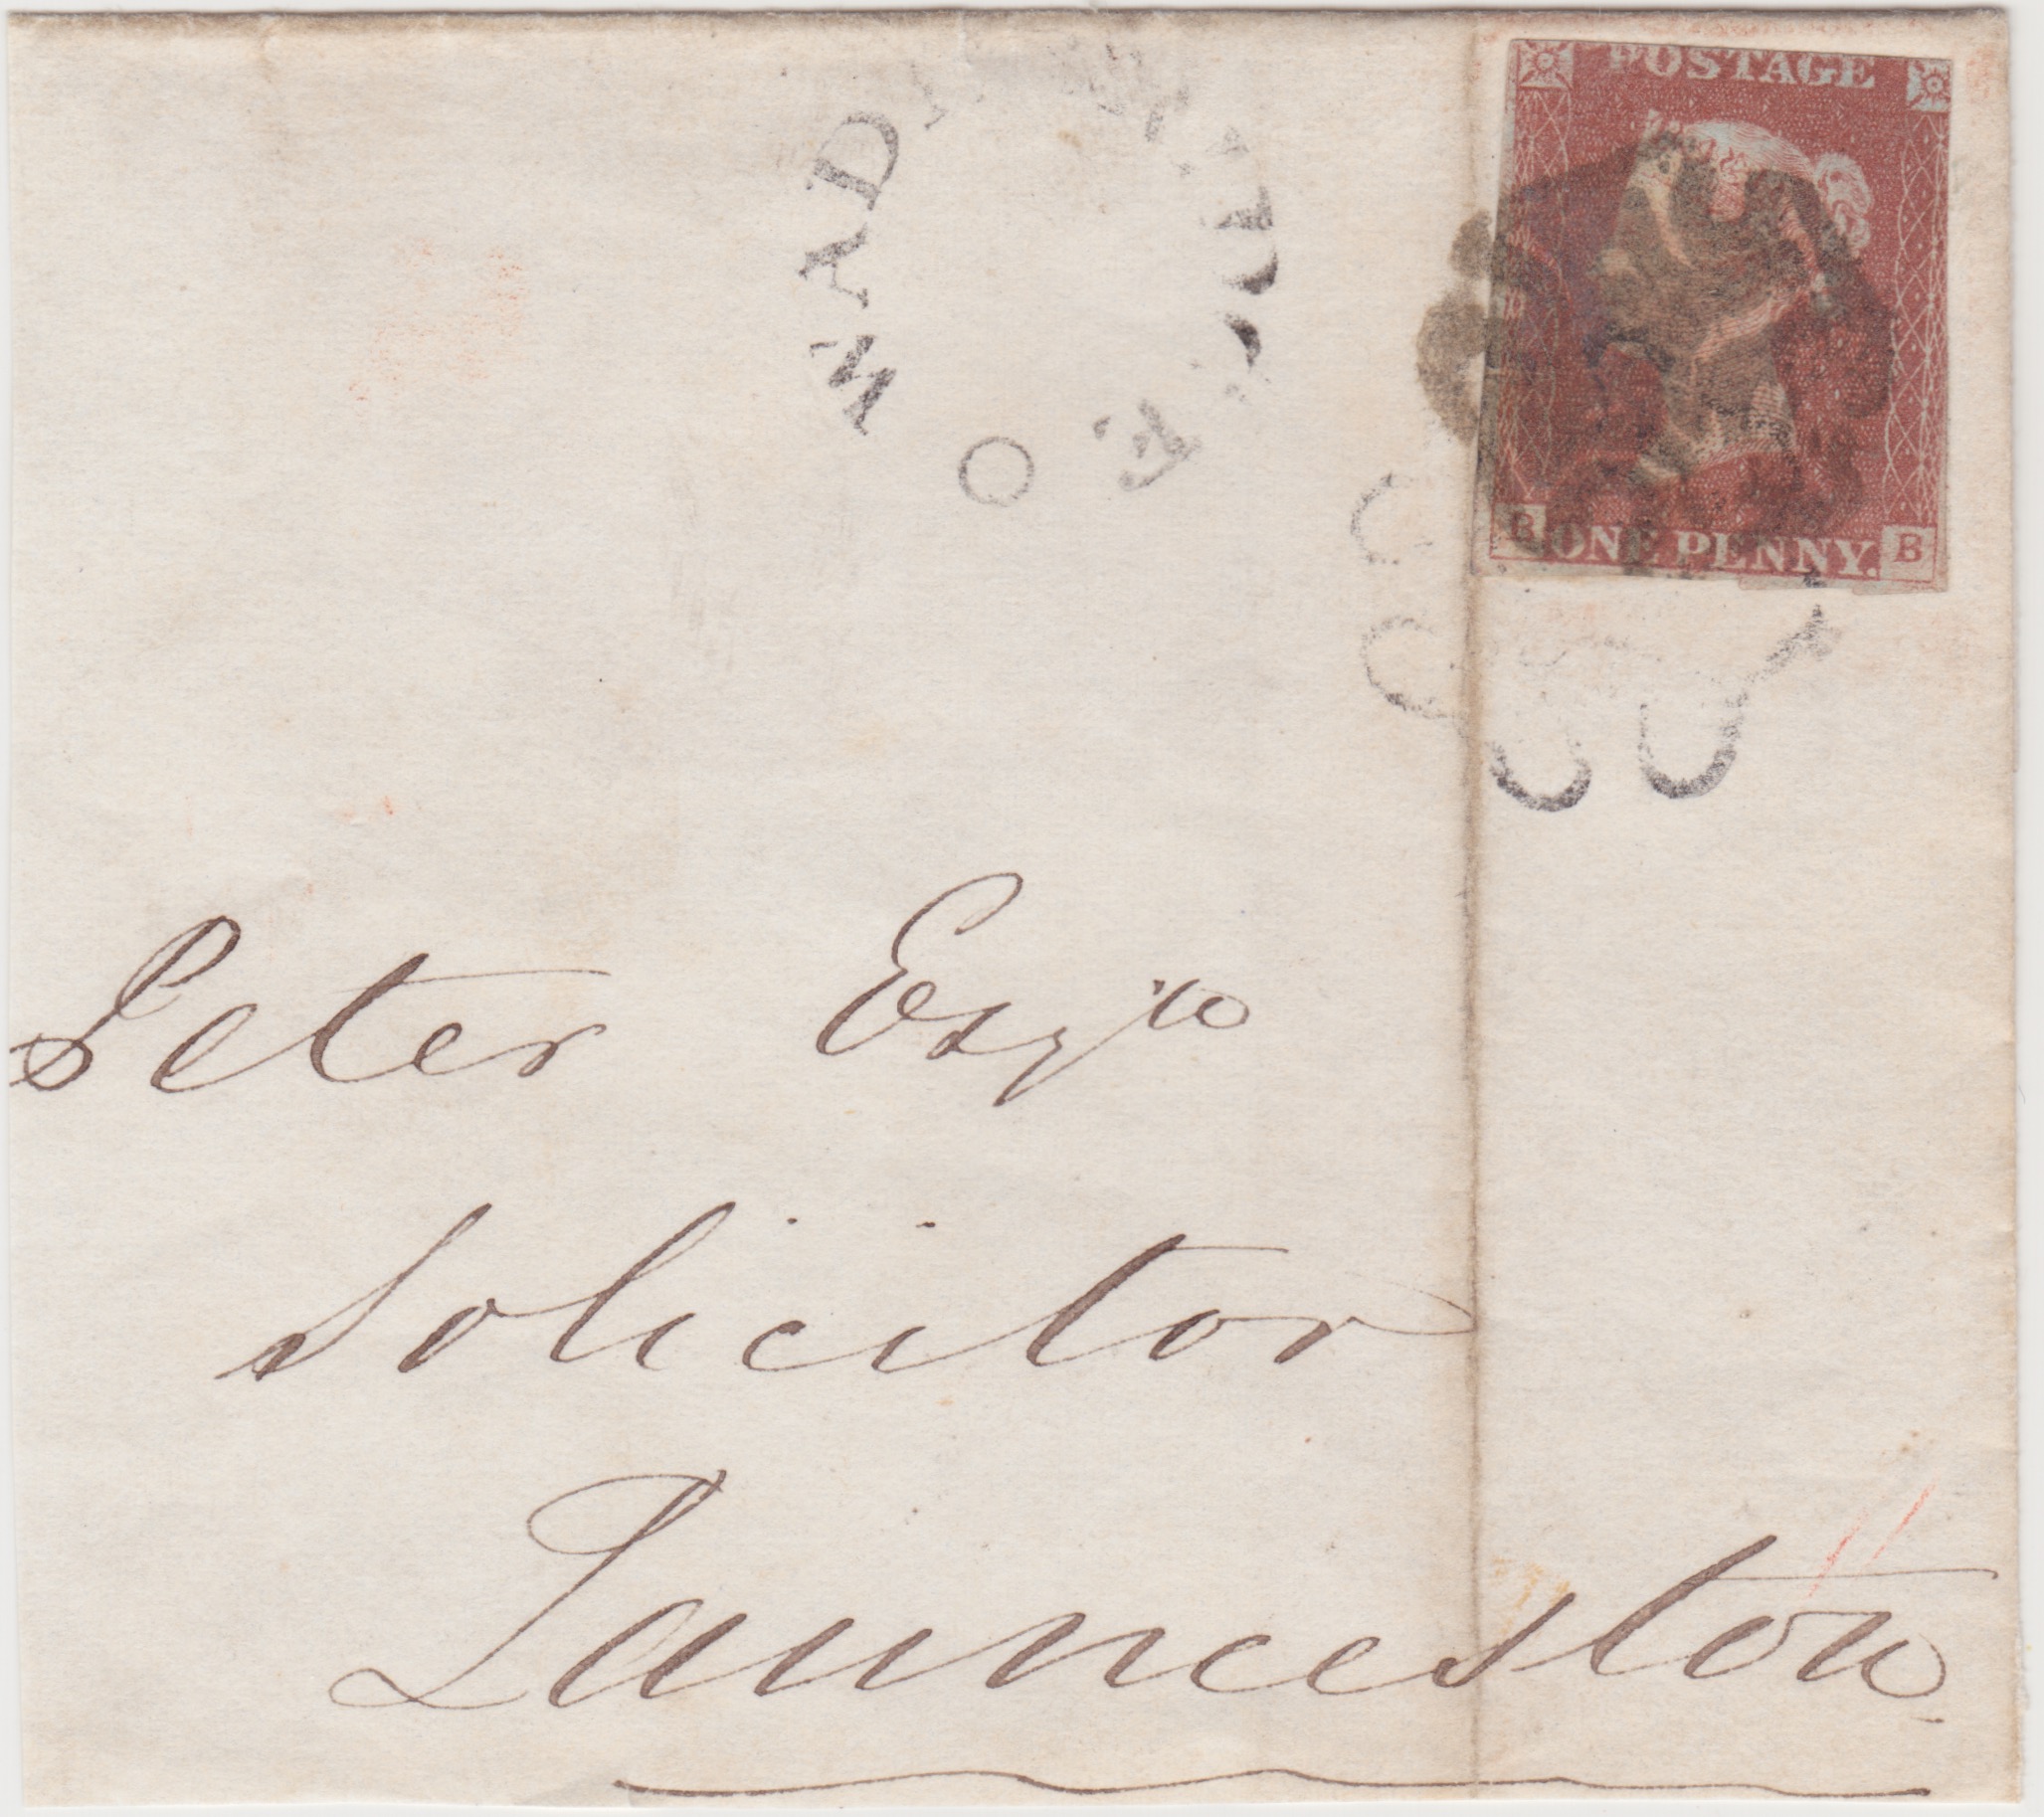 POSTAGE
B ONE PENNY. B
WAD
Peter Esqre
Solicitor
Launceston